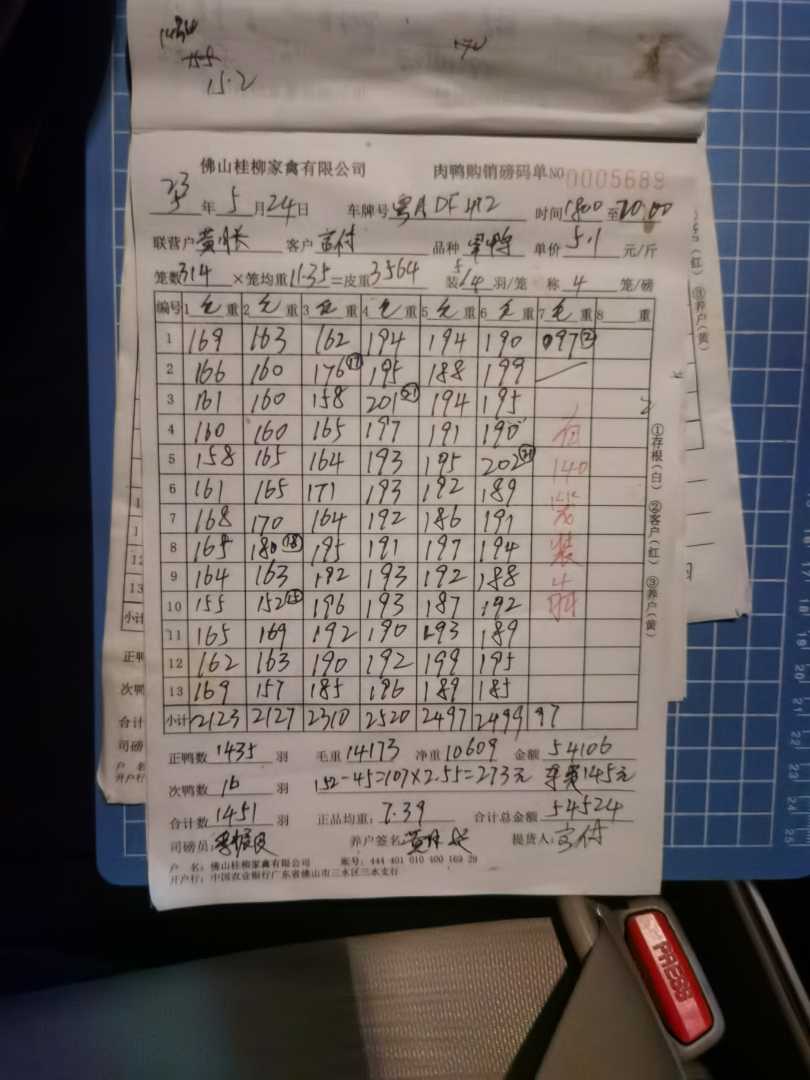 15.2
佛山桂柳家禽有限公司 肉鸭购销磅码单 NO 0005689
23年5月24日 车牌号 粤A DF 412 时间 1800 至 20:00
联营户 客户 品种 单价 5.1 元/斤
笼数 314 ×笼均重 11.35 =皮重 3564 装 5/4 羽/笼 称 4 笼/磅
编号 1 毛 重 2 毛 重 3 毛 重 4 毛 重 5 毛 重 6 毛 重 7 毛 重 8 重
1 169 163 162 194 194 190 097 ②
2 166 160 176 ⑰ 195 188 199
3 161 160 158 201 ㉑ 194 195
4 160 160 165 197 191 190
5 158 165 164 193 195 202
6 161 165 171 193 192 189 140
7 168 170 164 192 186 191
8 165 180 ⑱ 195 191 197 194 装
9 164 163 192 193 192 188 4
10 155 152 196 193 187 192
11 165 169 192 190 193 189
12 162 163 190 192 199 195
13 169 157 185 196 189 185
小计 2123 2127 2310 2520 2497 2499 97
正鸭数 1435 羽 毛重 14173 净重 10609 金额 54106
次鸭数 16 羽 152-45=107×2.55=273元 145元
合计数 1451 羽 正品均重: 7.39 合计总金额 54524
司磅员: 养户签名 提货人:
户 名: 佛山桂柳家禽有限公司 账号: 444 401 010 400 169 29
开户行: 中国农业银行广东省佛山市三水区三水支行
①存根(白) ②客户(红) ③养户(黄)
③养户(黄)
13
小计
正鸭
次鸭
合计
司磅
户 名
开户行
PRESS